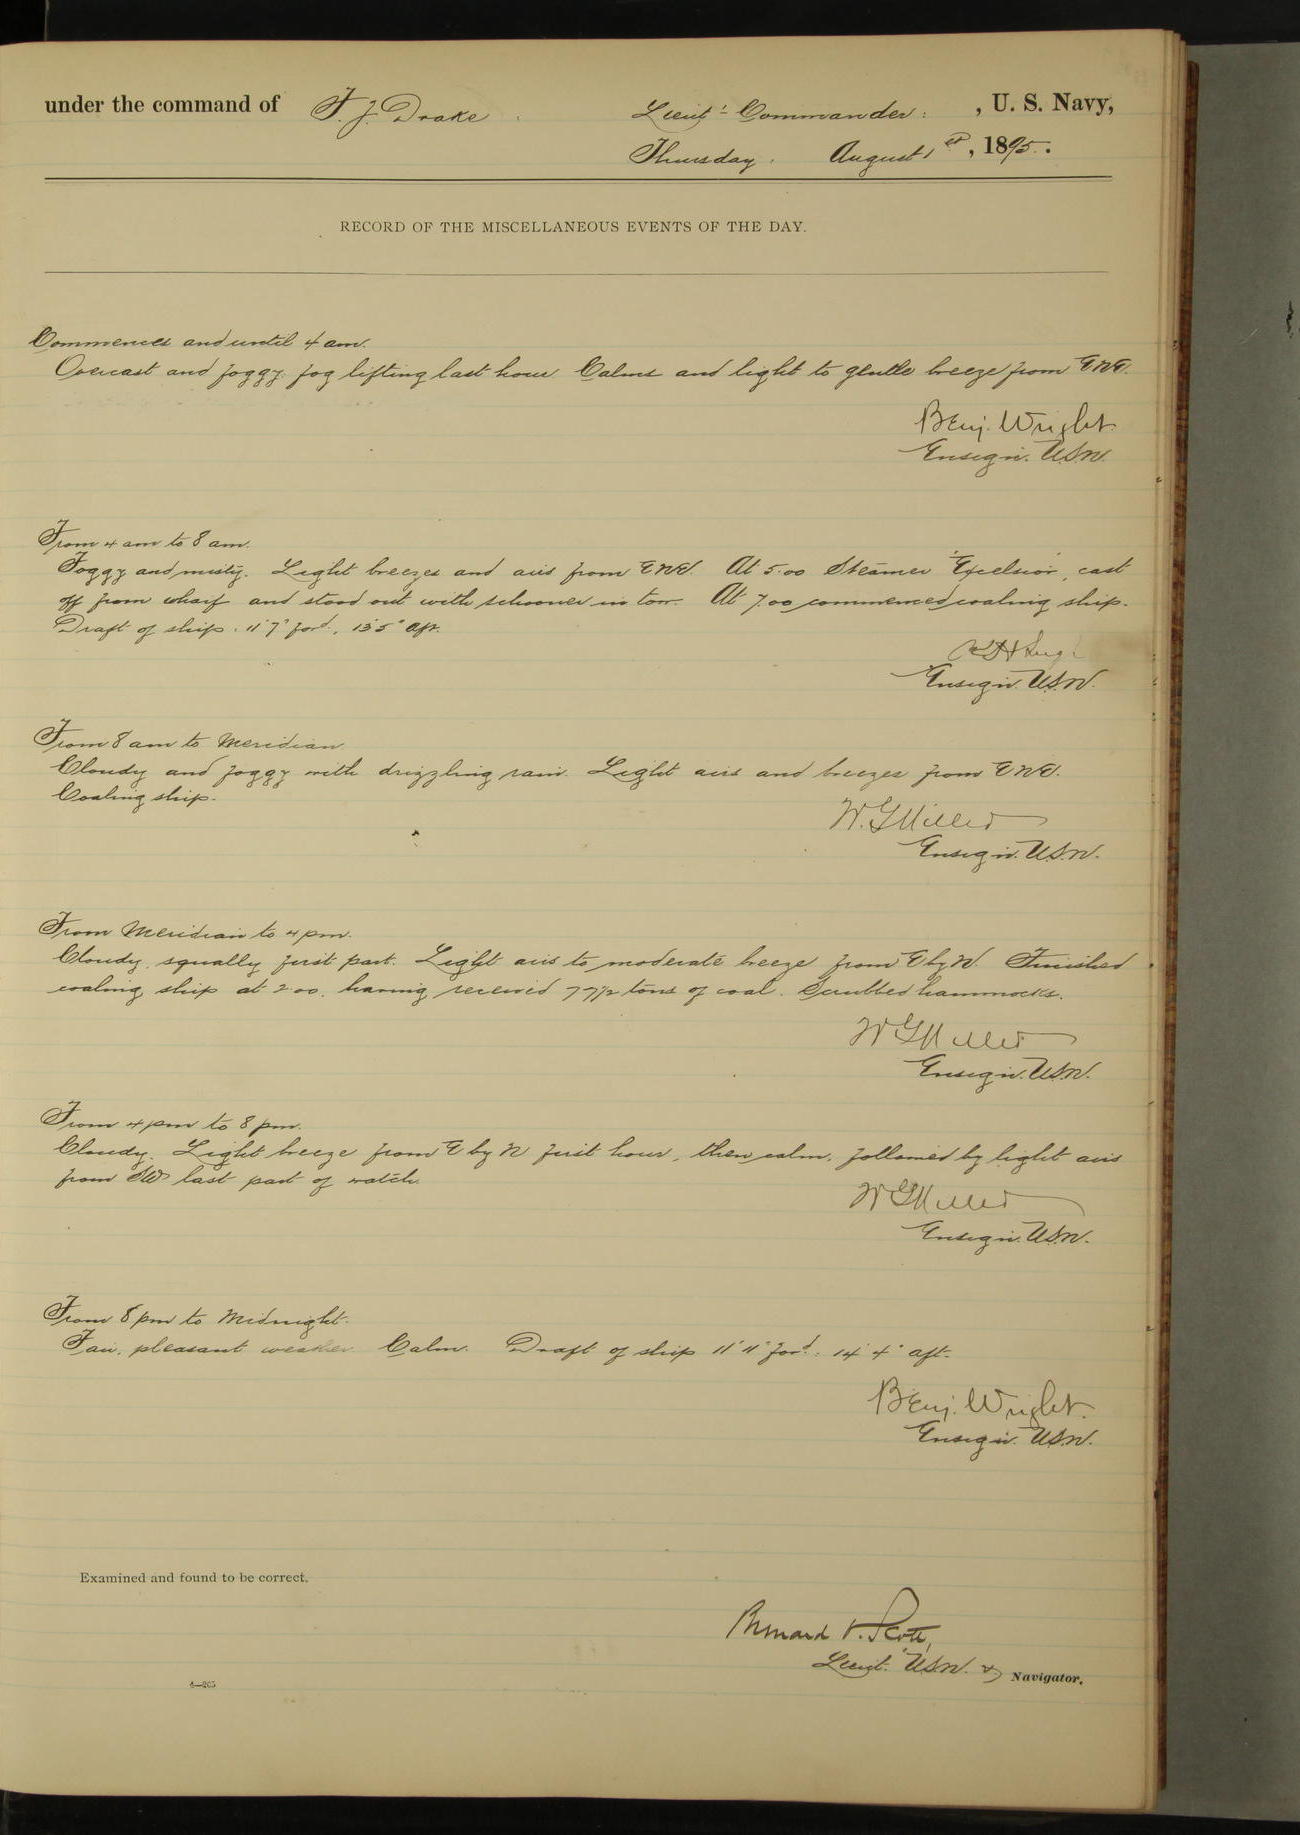 under the command of F. J. Drake Lieut-Commander, U. S. Navy,
Thursday, August 1st, 1895.
RECORD OF THE MISCELLANEOUS EVENTS OF THE DAY.
Commences and until 4 am.
Overcast and foggy; fog lifting last hour. Calms and light to gentle breeze from ENE.
Benj. Wright.
Ensign. U.S.N.
From 4 am to 8 am.
Foggy and misty. Light breezes and airs from ENE. At 5.00 Steamer "Excelsior", cast
off from wharf and stood out with schooner in tow. At 7.00 commenced coaling ship.
Draft of ship. 11' 7" for'd., 13' 5" aft.
Ensign. U.S.N.
From 8 am to Meridian.
Cloudy and foggy with drizzling rain. Light airs and breezes from ENE.
Coaling ship.
W. G. Miller
Ensign. U.S.N.
From Meridian to 4 pm.
Cloudy, squally first part. Light airs to moderate breeze from E by N. Finished
coaling ship at 2.00. having received 77 1/2 tons of coal. Scrubbed hammocks.
W G Miller
Ensign. U.S.N.
From 4 pm to 8 pm.
Cloudy. Light breeze from E by N first hour, then calm, followed by light airs
from SW last part of watch.
W G Miller
Ensign. U.S.N.
From 8 pm to Midnight.
Fair, pleasant weather. Calm. Draft of ship 11' 11" for'd.: 14' 4" aft.
Benj. Wright.
Ensign. U.S.N.
Examined and found to be correct.
Bernard O. Scott,
Lieut. U.S.N. & Navigator.
4—205